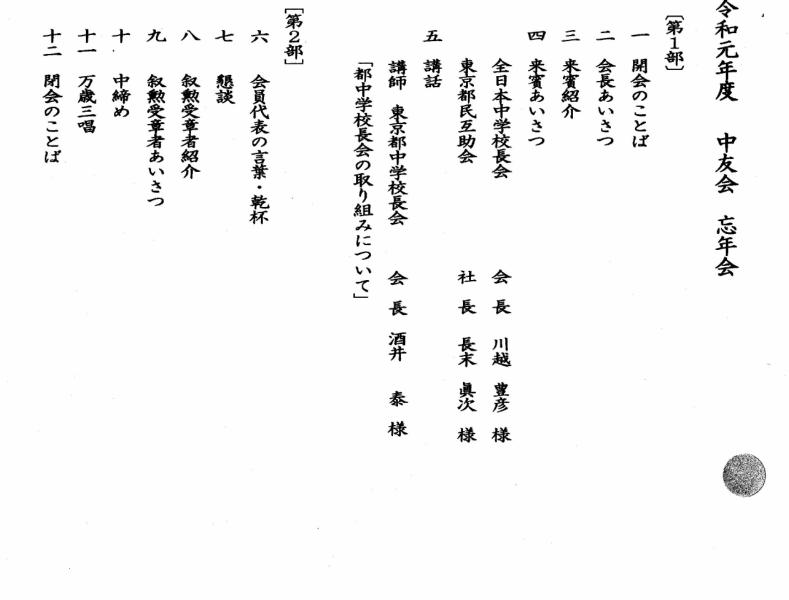 令和元年度　中友会　忘年会
［第１部］
一　開会のことば
二　会長あいさつ
三　来賓紹介
四　来賓あいさつ
全日本中学校長会　会長　川越　豊彦　様
東京都民互助会　社長　長末　眞次　様
五　講話
講師　東京都中学校長会　会長　酒井　泰　様
「都中学校長会の取り組みについて」
［第２部］
六　会員代表の言葉・乾杯
七　懇談
八　叙勲受章者紹介
九　叙勲受章者あいさつ
十　中締め
十一　万歳三唱
十二　閉会のことば